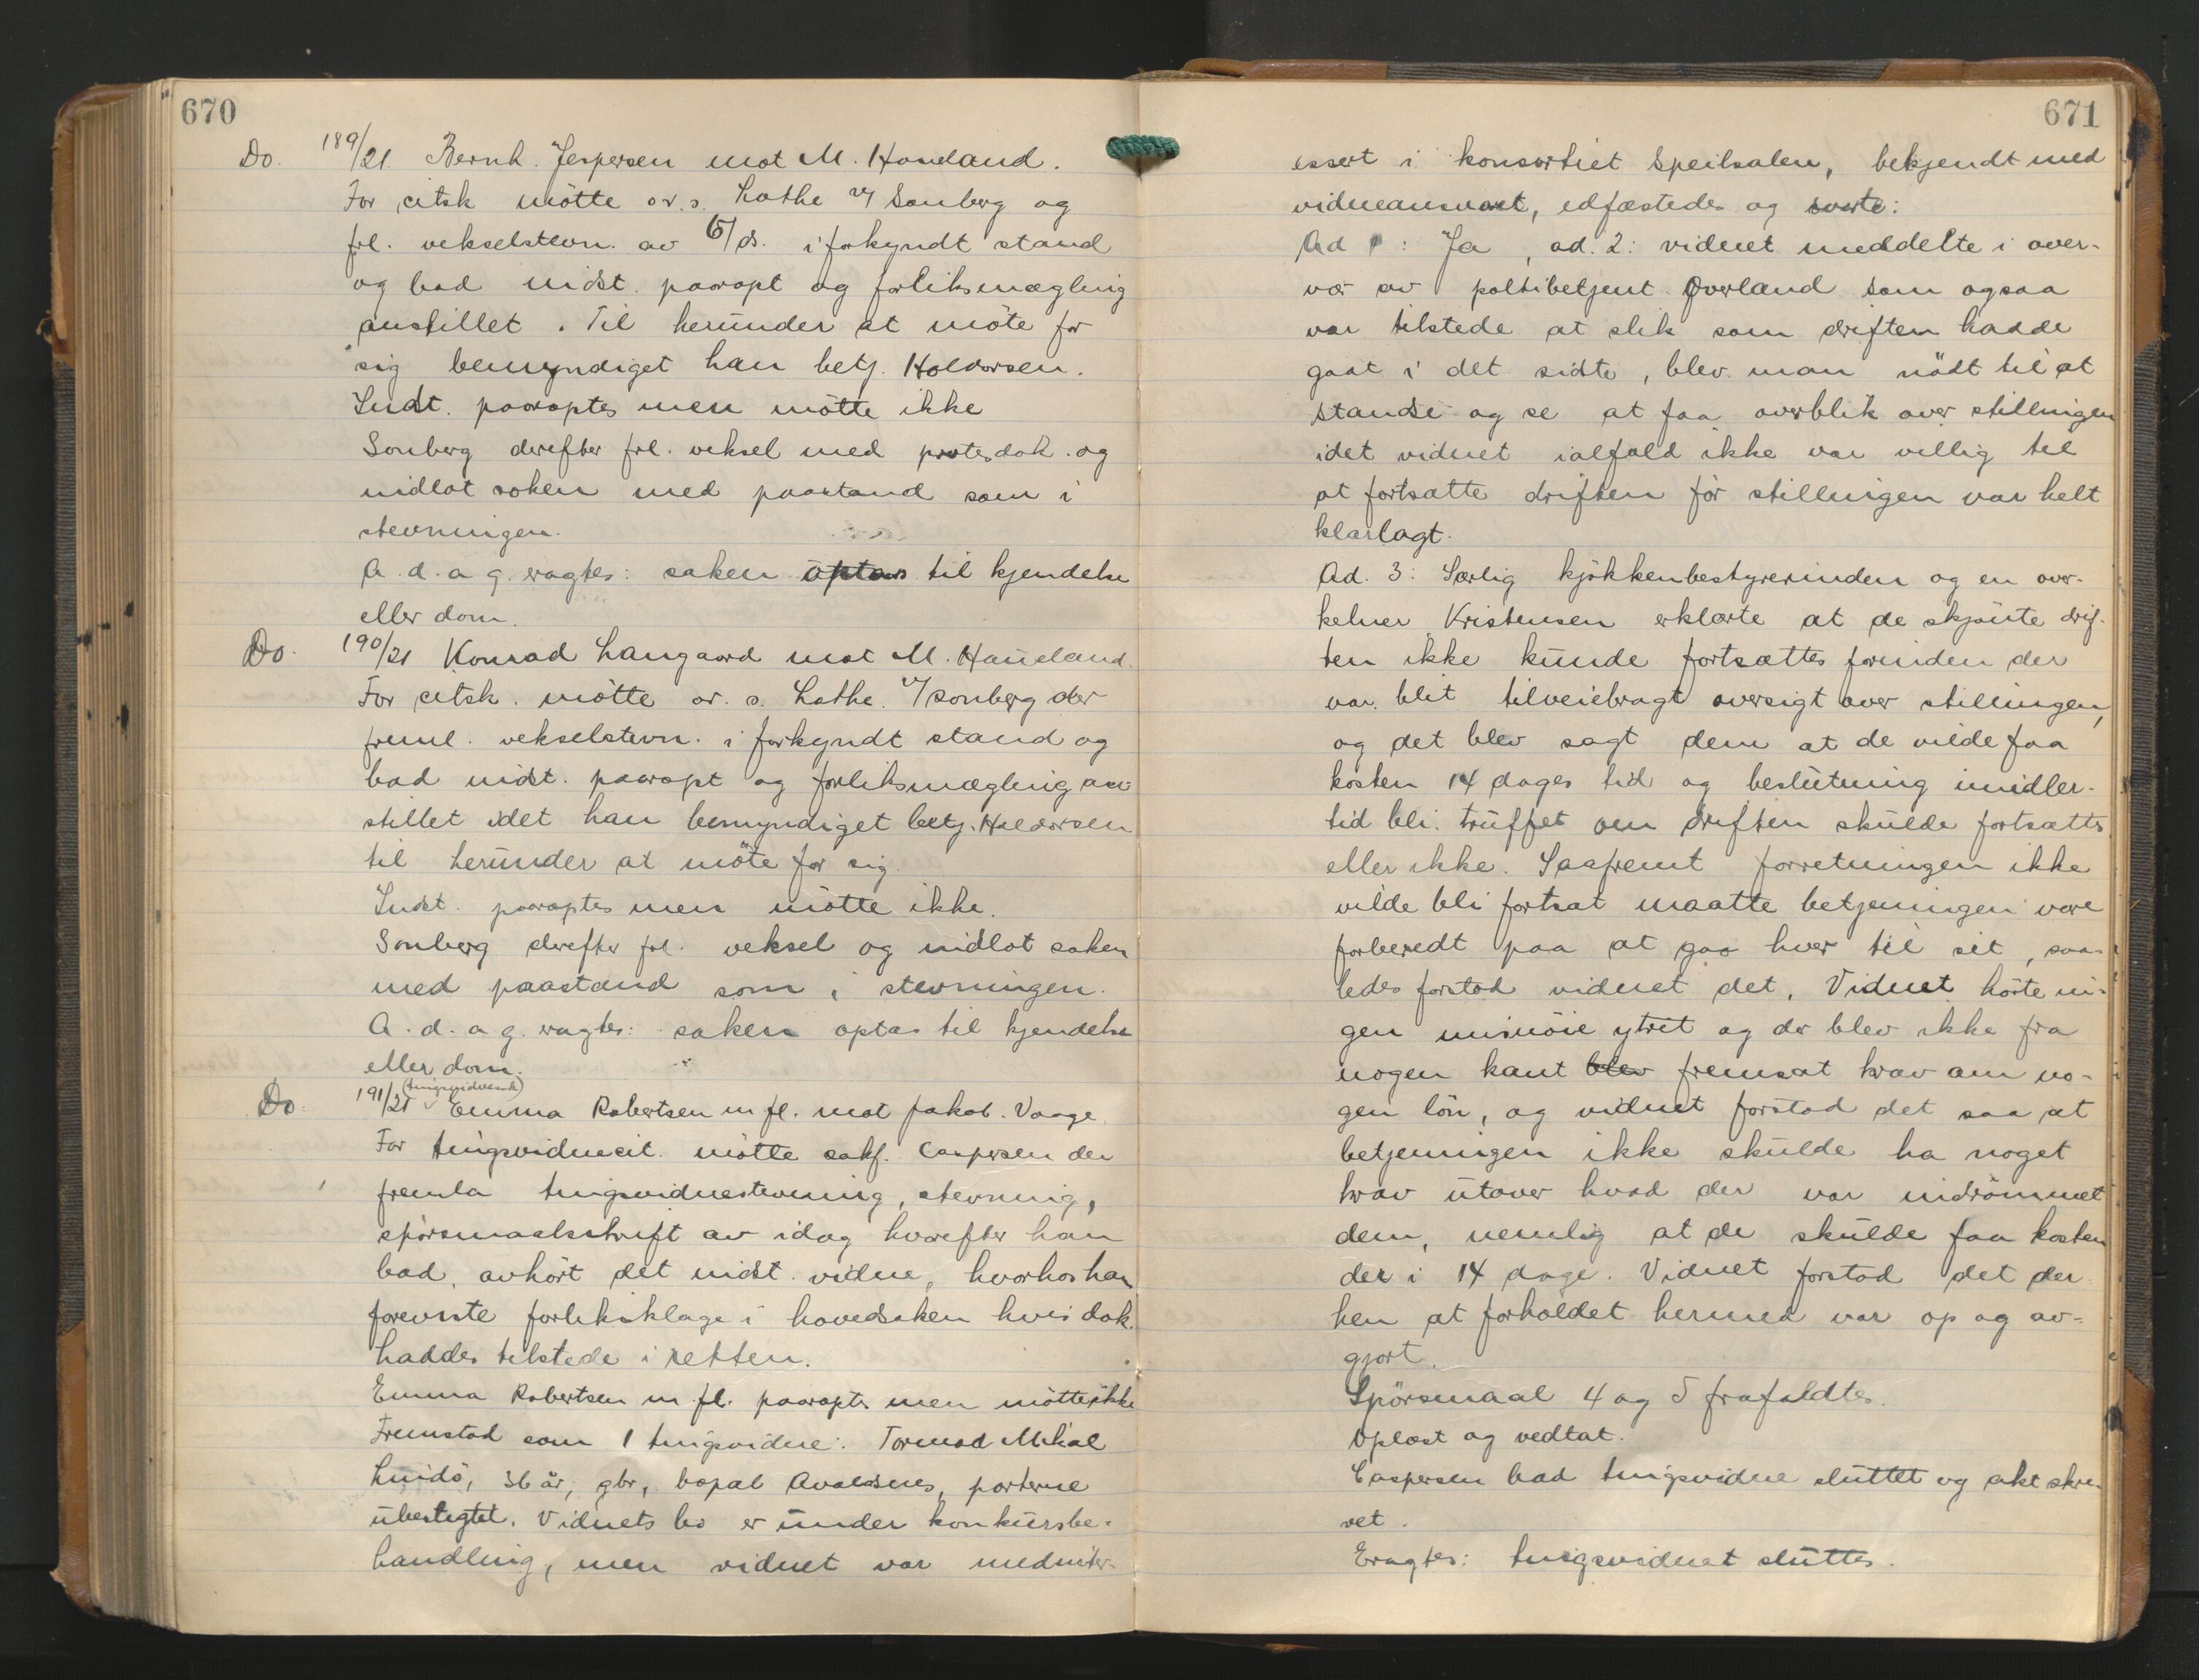 670
Do. 189/21. Bernh. Jespersen mot M. Haneland.
For citsk møtte or. s. Lothe v/ Sonberg og
frl. vekselstevn. av 6/ds. i forkyndt stand
og bad indst. paaropt og forliksmægling
anstillet. Til herunder at møte for
sig bemyndiget han betj. Haldorsen.
Indst. paaroptes men møtte ikke
Sonberg derefter frl. veksel med protesdok. og
indlot saken med paastand som i
stevningen.
A. d. a g. eragtes: saken optas til kjendelse
eller dom.
Do. 190/21 Konrad Langaard mot M. Haneland.
For citsk. møtte or. s. Lothe. v/ Sonberg der
freml. vekselstevn. i forkyndt stand og
bad indst. paaropt og forliksmægling an-
stillet idet han bemyndiget betj. Haldorsen
til herunder at møte for sig.
Indst. paaroptes men møtte ikke.
Sonberg derefter frl. veksel og indlot saken
med paastand som i stevningen.
A. d. a g. eragtes: saken optas til kjendelse
eller dom.
(tingsvidnesak)
Do 191/21 Emma Robertsen m fl. mot Jakob. Vaage.
For tingsvidnecit. møtte sakf. Caspersen der
fremla tingsvidnestevning, stevning,
spørsmaalsskrift av idag hvorefter han
bad, avhørt det indst. vidne, hvorhos han
foreviste forliksklage i hovedsaken hvis dok.
haddes tilstede i retten.
Emma Robertsen m. fl. paaroptes men møtte ikke
Fremstod som 1 tingsvidne: Tormod Mikal
Lindø, 36 år, gbr, bopal Avaldsnes, parterne
ubeslegtet. Vidnets bo er under konkursbe-
handling, men vidnet var medinter-
671
essert i konsortiet Speilsalen, bekjendt med
vidneansvaret, edfæstedes og svarte:
Ad 1: Ja, ad. 2: vidnet meddelte i over-
vær av politibetjent Øverland som ogsaa
var tilstede at slik som driften hadde
gaat i det sidte, blev man nødt til at
standse og se at faa overblik over stillingen
idet vidnet ialfald ikke var villig til
at fortsætte driften før stillingen var helt
klarlagt.
Ad. 3: Særlig kjøkkenbestyrerinden og en over-
kelner Kristensen erklærte at de skjønte drif-
ten ikke kunde fortsættes forinden der
var blit tilveiebragt oversigt over stillingen,
og det blev sagt dem at de vilde faa
kosten 14 dages tid og beslutning imidler-
tid bli truffet om driften skulde fortsættes
eller ikke. Saafremt forretningen ikke
vilde bli fortsat maatte betjeningen være
forberedt paa at gaa hver til sit, saa-
ledes forstod vidnet det. Vidnet hørte in-
gen misnøie ytret og der blev ikke fra
nogen kant blev fremsat krav om no-
gen løn, og vidnet forstod det saa at
betjeningen ikke skulde ha noget
krav utover hvad der var indrømmet
dem, nemlig at de skulde faa kosten
der i 14 dage. Vidnet forstod det der
hen at forholdet hermed var op og av-
gjort.
Spørsmaal 4 og 5 frafaldtes.
Oplæst og vedtat.
Caspersen bad tingsvidne sluttet og akt skre
vet.
Eragtes: tingsvidnet sluttes.